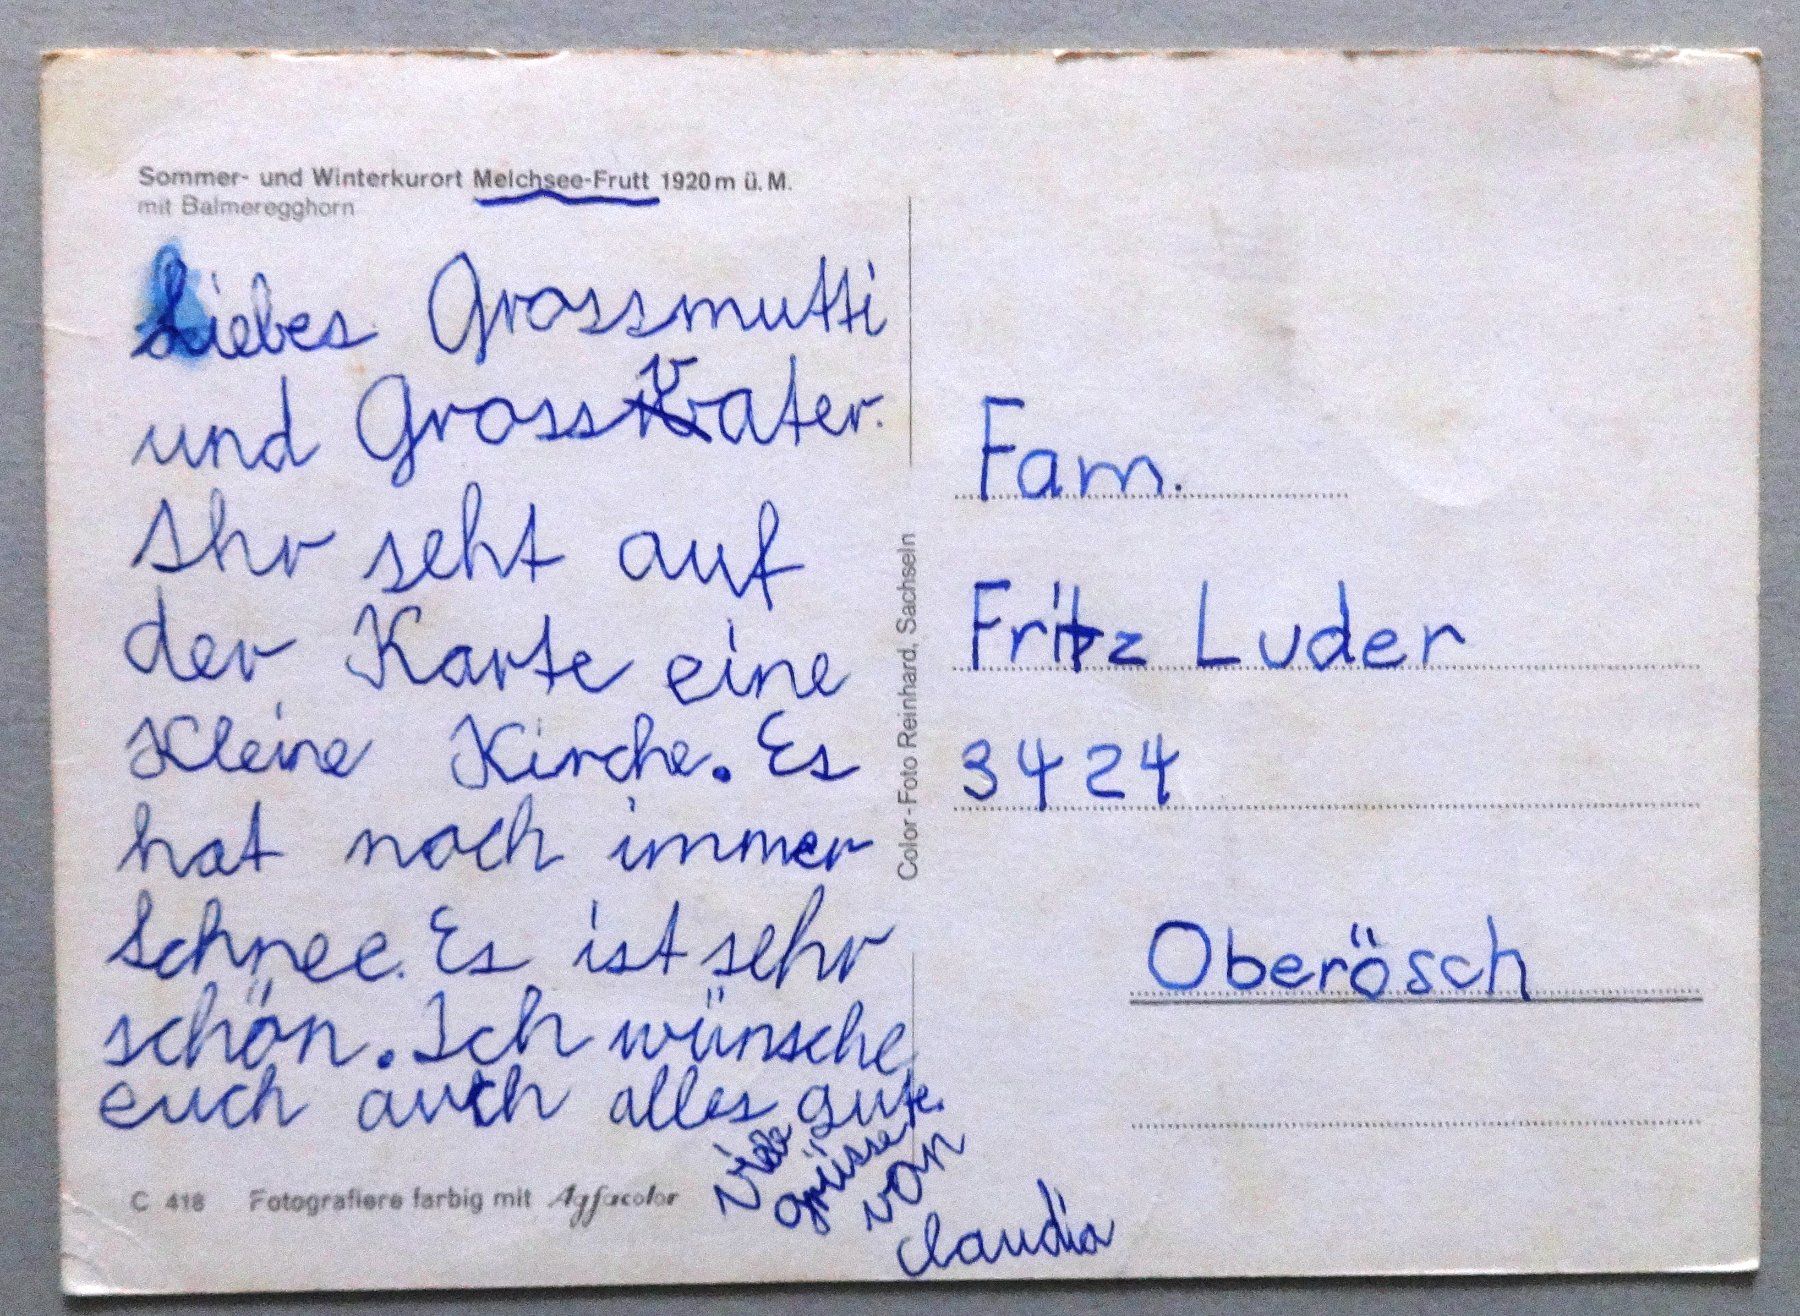 Sommer- und Winterkurort Melchsee-Frutt 1920 m ü. M.
mit Balmeregghorn
Liebes Grossmutti
und Grossvater.
Ihr seht auf
der Karte eine
Kleine Kirche. Es
hat noch immer
Schnee. Es ist sehr
schön. Ich wünsche
euch auch alles gute.
Viele
grüsse
von
Claudia
C 418 Fotografiere farbig mit Agfacolor
Color-Foto Reinhard, Sachseln
Fam.
Fritz Luder
3424
Oberösch